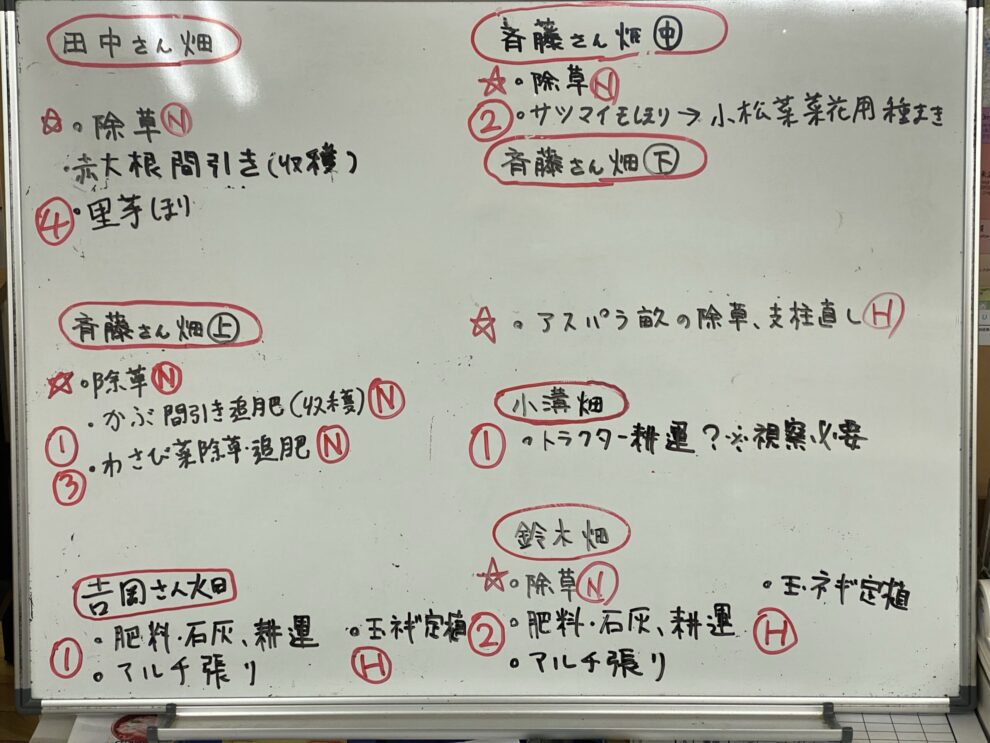 田中さん畑
☆・除草Ⓝ
・赤大根間引き(収穫)
④・里芋ほり
斉藤さん畑㊤
☆・除草Ⓝ
①・かぶ間引き追肥(収穫)Ⓝ
③・わさび菜除草・追肥Ⓝ
吉岡さん畑
①・肥料・石灰、耕運 ・玉ネギ定植Ⓗ
・マルチ張り
斉藤さん畑㊥
☆・除草Ⓝ
②・サツマイモほり→小松菜菜花用種まき
斉藤さん畑㊦
☆・アスパラ畝の除草、支柱直しⒽ
小溝畑
①・トラクター耕運?※視察必要
鈴木畑
☆・除草Ⓝ ・玉ネギ定植
②・肥料・石灰、耕運Ⓗ
・マルチ張り